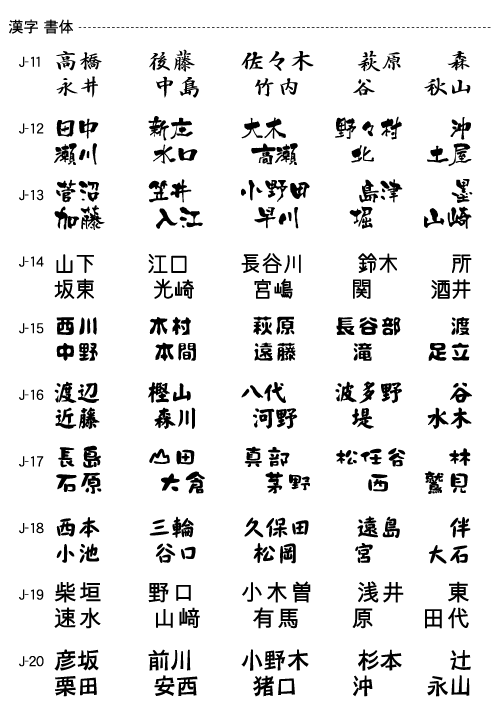 漢字 書体
J-11 高橋 後藤 佐々木 萩原 森
永井 中島 竹内 谷 秋山
J-12 田中 新庄 大木 野々村 沖
瀬川 水口 高瀬 北 土屋
J-13 菅沼 笠井 小野田 島津 墨
加藤 入江 早川 堀 山崎
J-14 山下 江口 長谷川 鈴木 所
坂東 光崎 宮嶋 関 酒井
J-15 西川 木村 萩原 長谷部 渡
中野 本間 遠藤 滝 足立
J-16 渡辺 樫山 八代 波多野 谷
近藤 森川 河野 堤 水木
J-17 長島 山田 真部 松任谷 林
石原 大倉 茅野 西 鷲見
J-18 西本 三輪 久保田 遠島 伴
小池 谷口 松岡 宮 大石
J-19 柴垣 野口 小木曽 浅井 東
速水 山﨑 有馬 原 田代
J-20 彦坂 前川 小野木 杉本 辻
栗田 安西 猪口 沖 永山